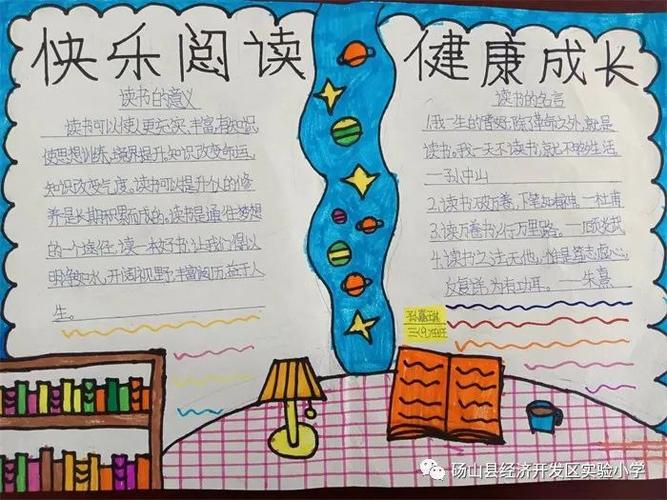 快乐阅读
健康成长
读书的意义
读书可以使人更充实,丰富有知识
使思想训练,境界提升,知识改变命运,
知识改变气度。读书可以提升似的修
养是长期积累而成的。读书是通往梦想
的一个途径,读一本好书,让我们得以
明净如水,开阔视野,丰富阅历,益于人
生。
读书的名言
1.我一生的嗜好,除了革命之外,就是
读书。我一天不读书,就不能够生活
—孙中山
2.读书破万卷,下笔如有神。—杜甫
3.读万卷书,行万里路。—顾炎武
4.读书之法无他,惟是笃志虚心,
反复详,为有功耳。—朱熹
砀山县经济开发区实验小学